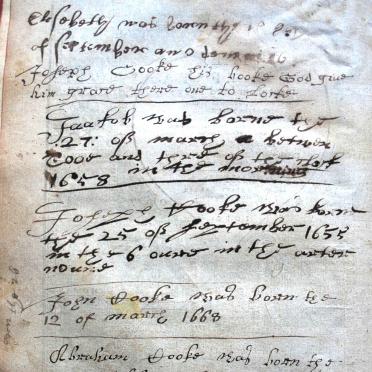 Elsebeth was born the
of September ano dom
Joseph Cooke his booke God give
him grace there one to Locke
Jaakob was borne the
.27: of march a betwen
tooe and thre of the
1658 in the morning
Joseph Cooke was born
the 25 of September 1655
in the 6 oure in the after
noune
John Cooke was born the
12 of march 1668
Abraham Cooke was born the